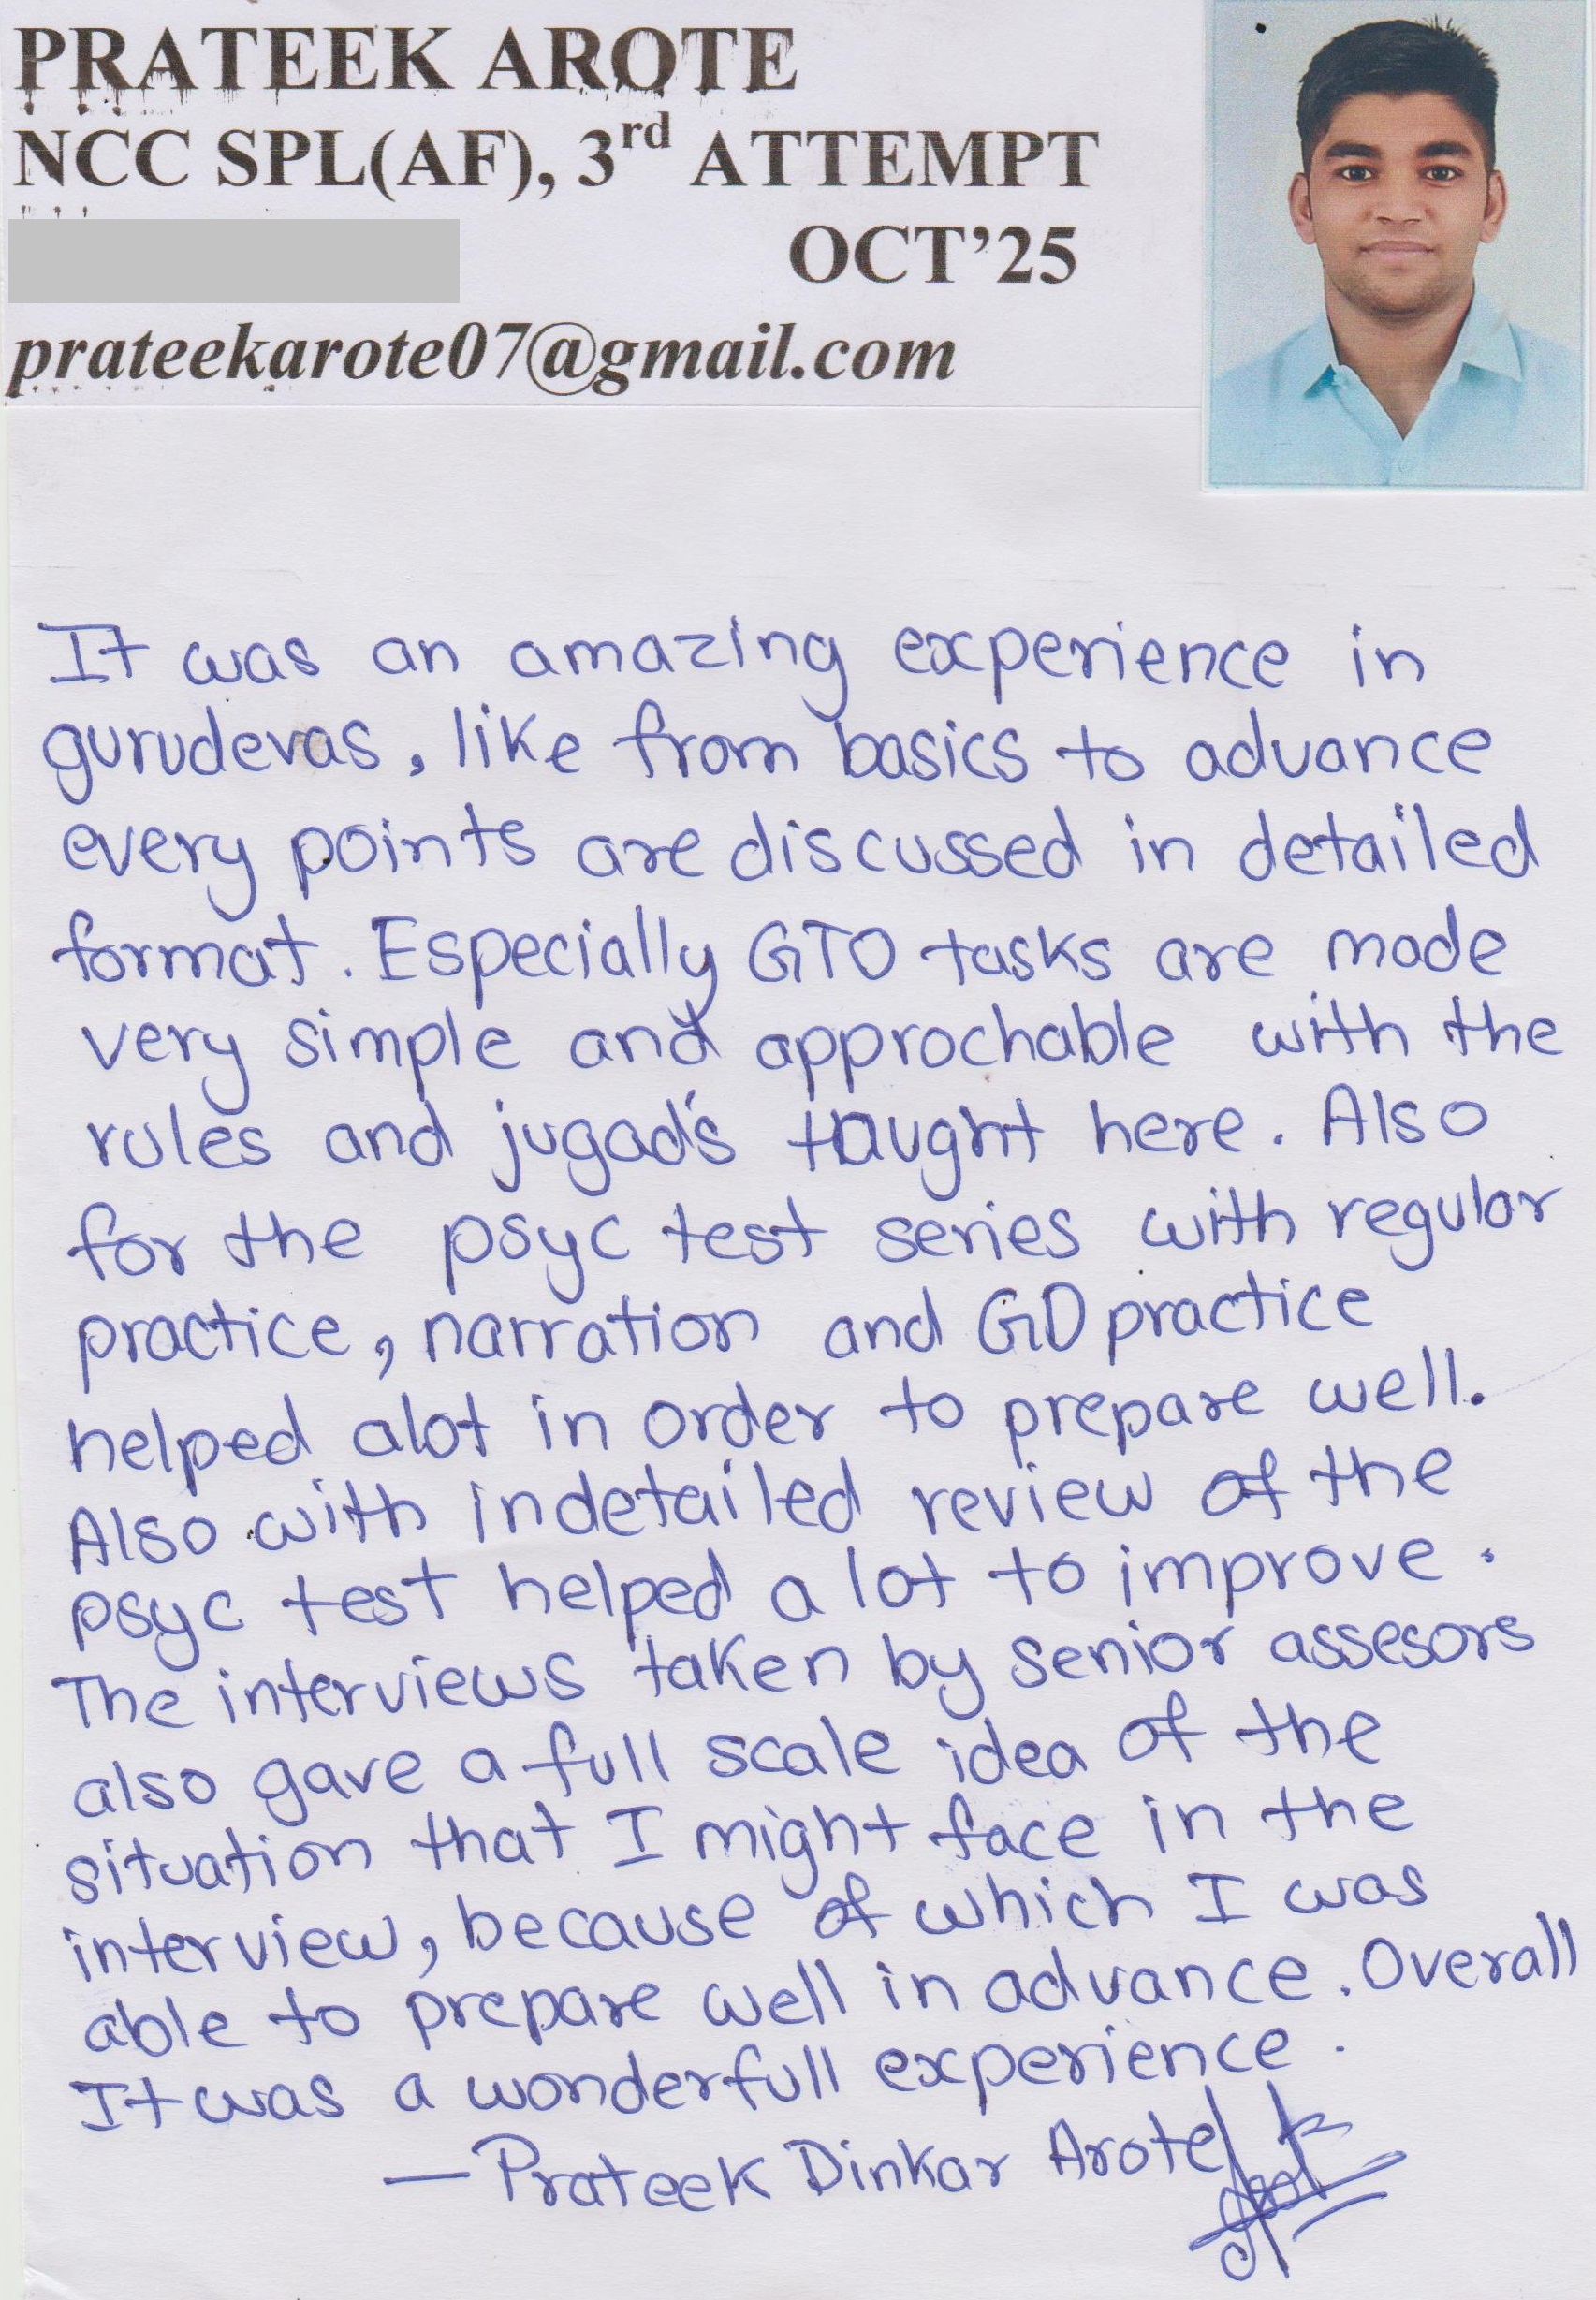 PRATEEK AROTE
NCC SPL(AF), 3rd ATTEMPT
OCT’25
prateekarote07@gmail.com
It was an amazing experience in
gurudevas, like from basics to advance
every points are discussed in detailed
format. Especially GTO tasks are made
very simple and approchable with the
rules and jugad's taught here. Also
for the psyc test series with regular
practice, narration and GD practice
helped alot in order to prepare well.
Also with indetailed review of the
psyc test helped a lot to improve.
The interviews taken by senior assesors
also gave a full scale idea of the
situation that I might face in the
interview, because of which I was
able to prepare well in advance. Overall
It was a wonderfull experience.
— Prateek Dinkar Arote